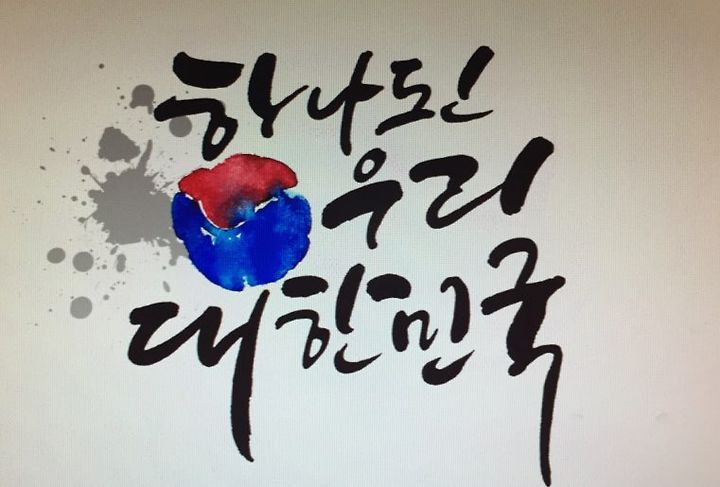 하나된
우리
대한민국